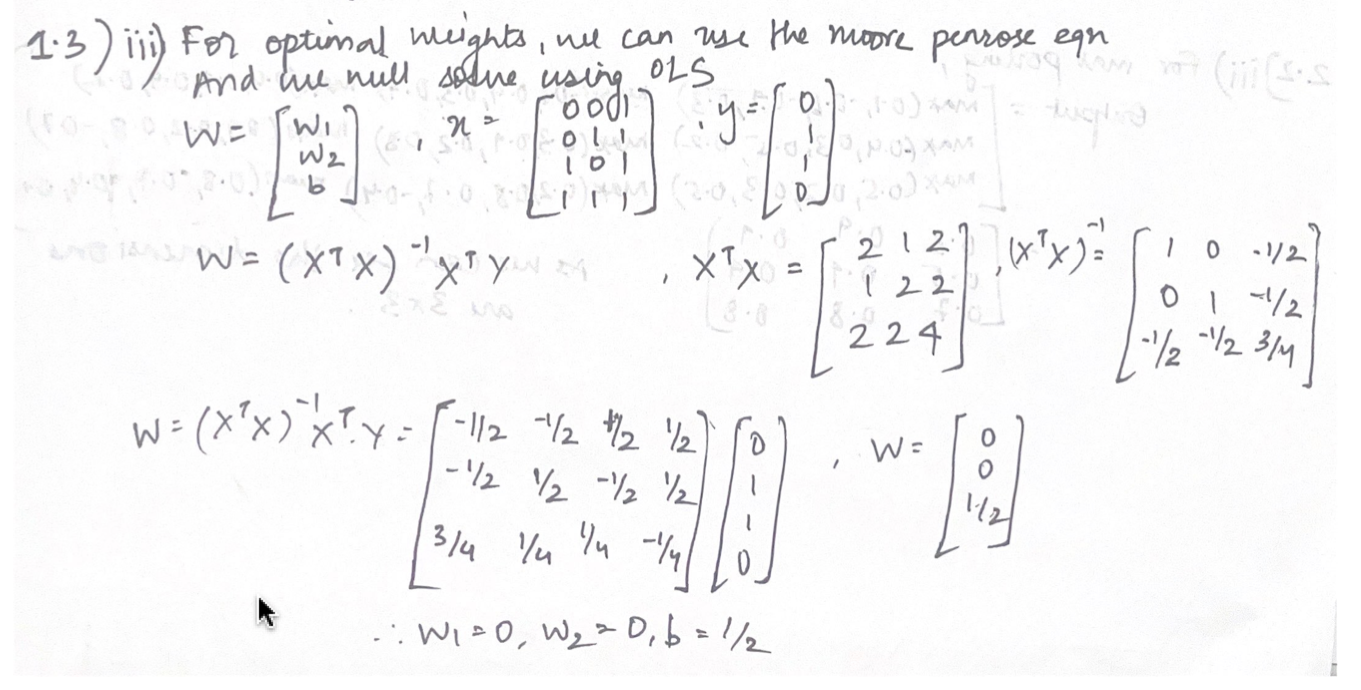 1.3) iii) For optimal weights, we can use the moore penrose eqn
And we will solve using OLS
W = [W1 W2 b], x = [0 0 1 0 1 1 1 0 1 1 1 1], y = [0 1 1 0]
W = (X^T X)^-1 X^T Y, X^T X = [2 1 2 1 2 2 2 2 4], (X^T X)^-1 = [1 0 -1/2 0 1 -1/2 -1/2 -1/2 3/4]
W = (X^T X)^-1 X^T. Y = [-1/2 -1/2 1/2 1/2 -1/2 1/2 -1/2 1/2 3/4 1/4 1/4 -1/4] [0 1 1 0], W = [0 0 1/2]
∴ W1 = 0, W2 = 0, b = 1/2